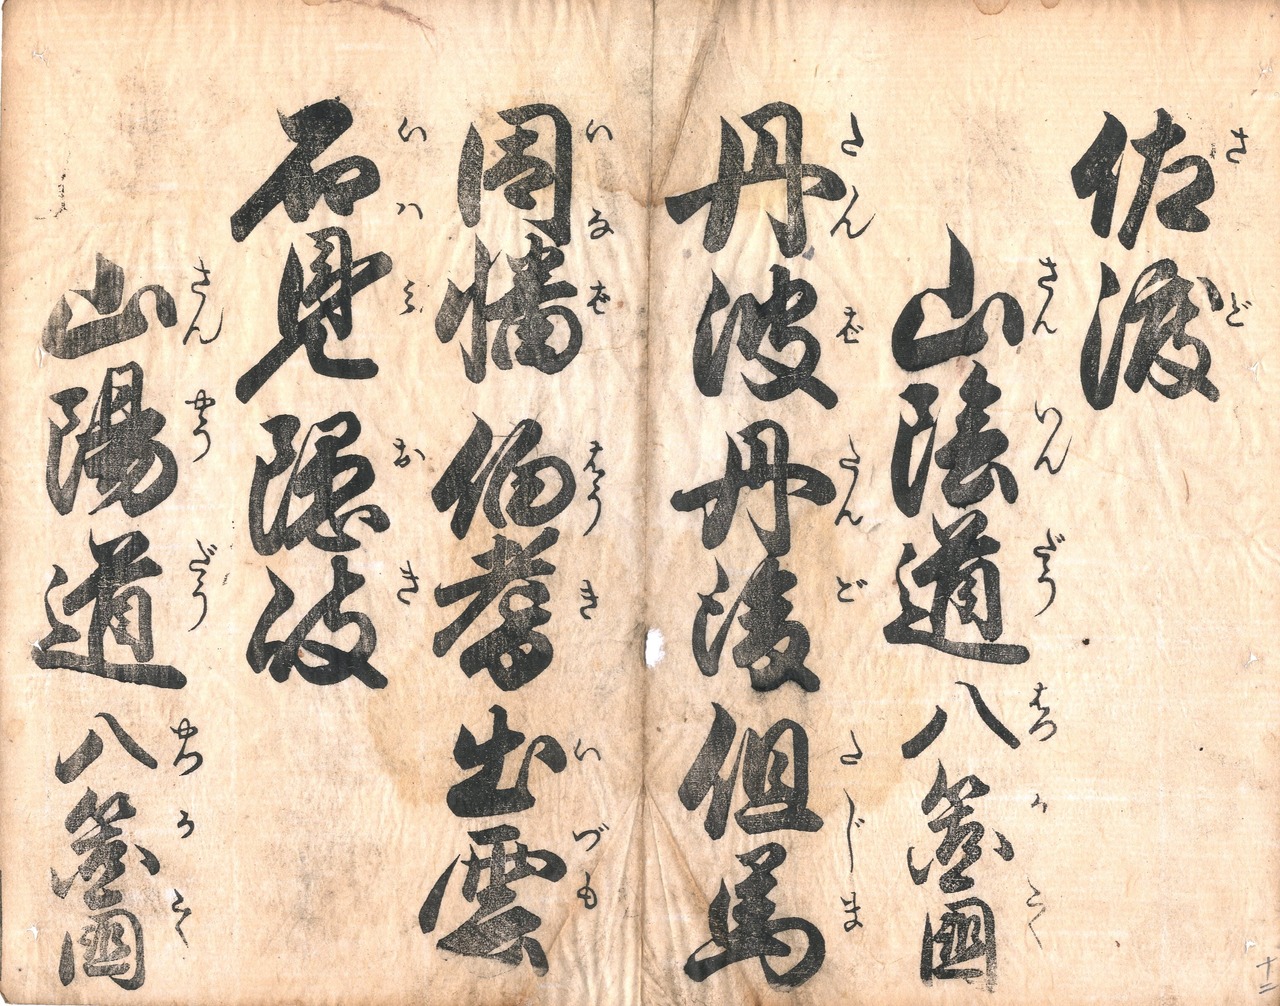 佐渡
さど
山陰道八箇國
さんいんだうはつかこく
丹波丹後但馬
たんばたんごたじま
因幡伯耆出雲
いなばはうきいづも
石見隠岐
いはみおき
山陽道八箇國
さんやうだうはちかこく
十二